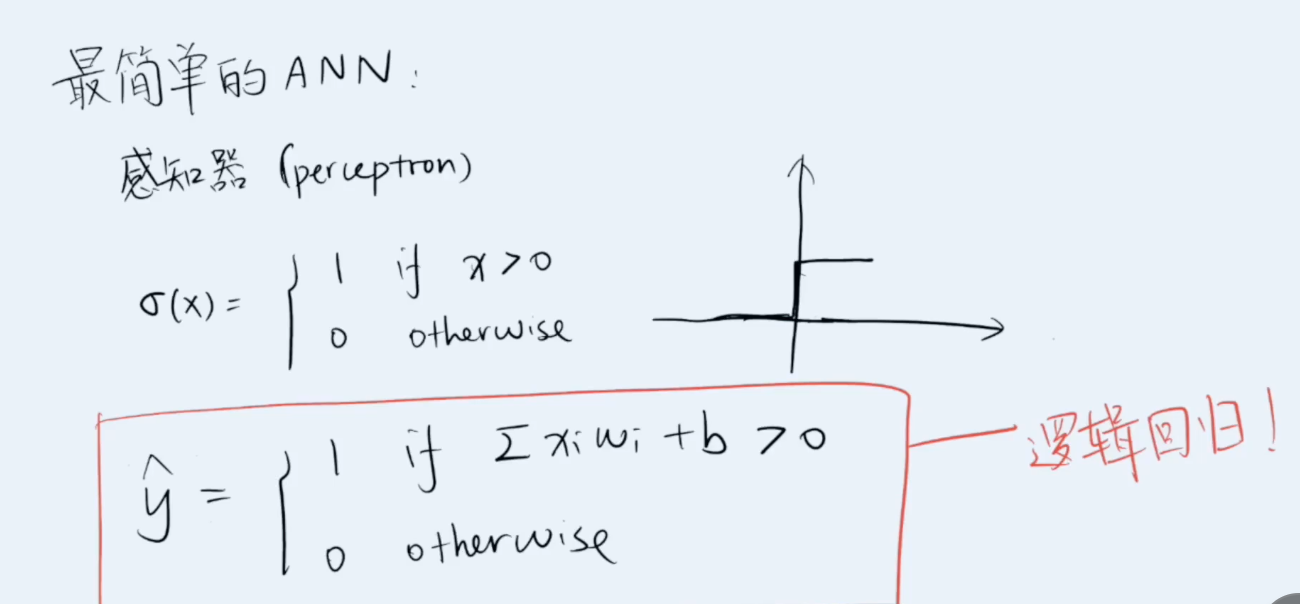 最简单的ANN:
感知器 (perceptron)
σ(x) = { 1 if x > 0
0 otherwise
ŷ = { 1 if Σ xi wi + b > 0
0 otherwise
逻辑回归!